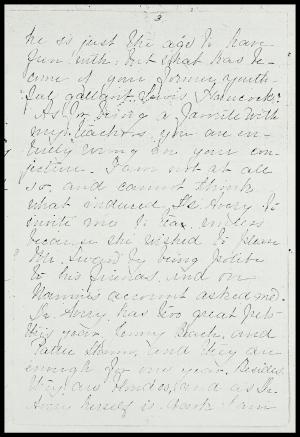 3
he is just the age to have
fun with. But what has be-
come of your former youth-
ful gallant, Lewis Hancock?
As for being a familie with
my teachers, you are en-
tirely wrong in your con-
jecture. I am not at all
so, and cannot think
what induced Dr. Avery to
invite me to tea unless
because she wished to please
Mr. Sward by being polite
to his friends, and on
Nannie's account asked me.
Dr. Avery has two great pets
this year, Leach, and
Pattie, and they are
enough for one year. Besides,
they are blondes, and as Dr.
Avery herself is dark I am